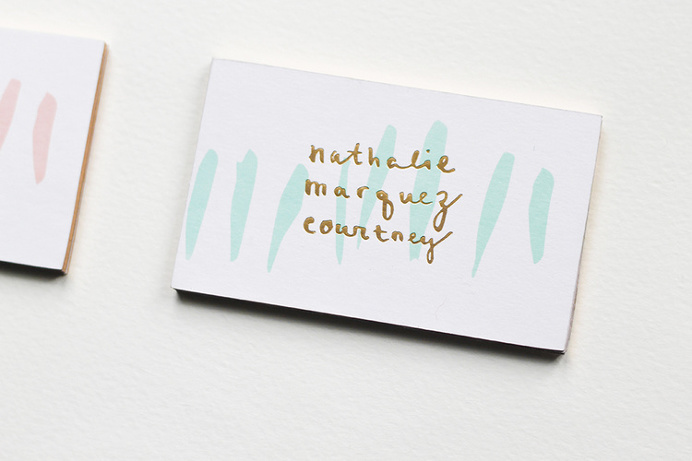 nathalie
marquez
courtney